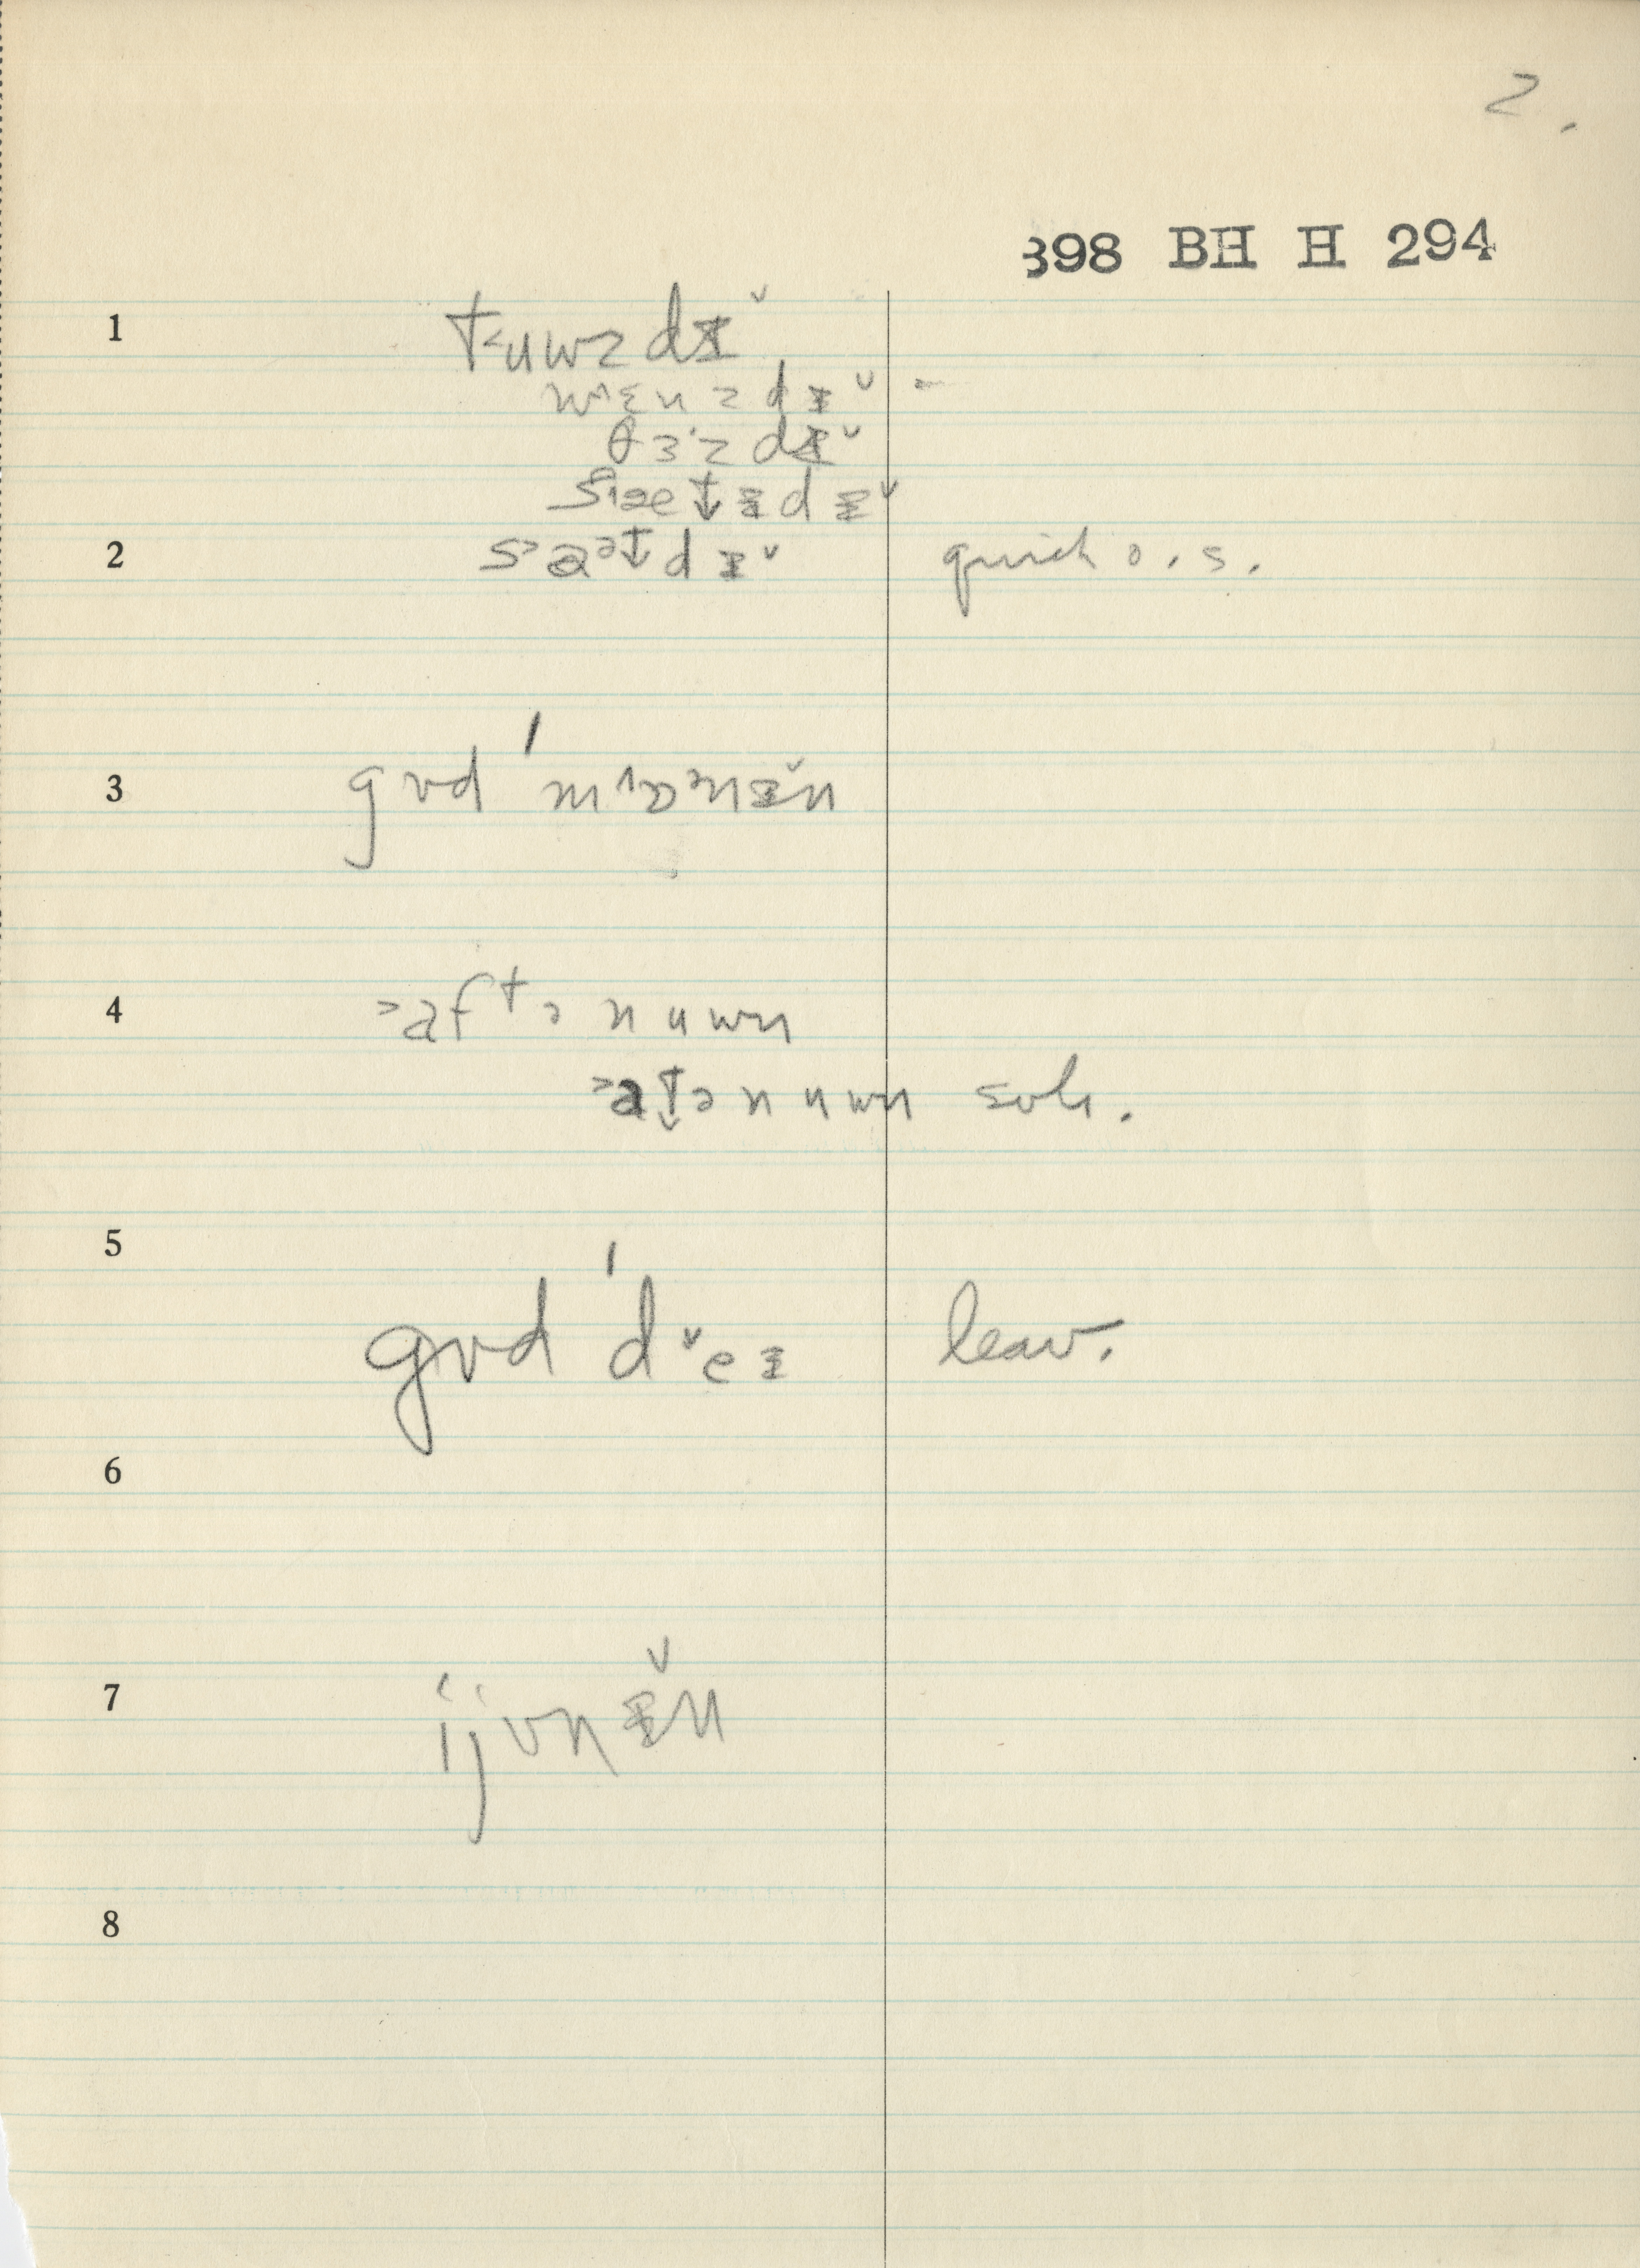 2.
398 BH H 294
1 t˂uwz dɪ̌
w^ɛnzdɪ˅ -
θɜ·zdɪ˅
2 s˃a˃t̬dɪ˅ quick o.s.
3 gʊd 'm^ɒ˃nɪ̌n
4 ˃aftə nuwn
˃at̬ə nuwn sub.
5 gʊd 'd˅eɪ leav.
6
7 ijvnɪ̌n
8